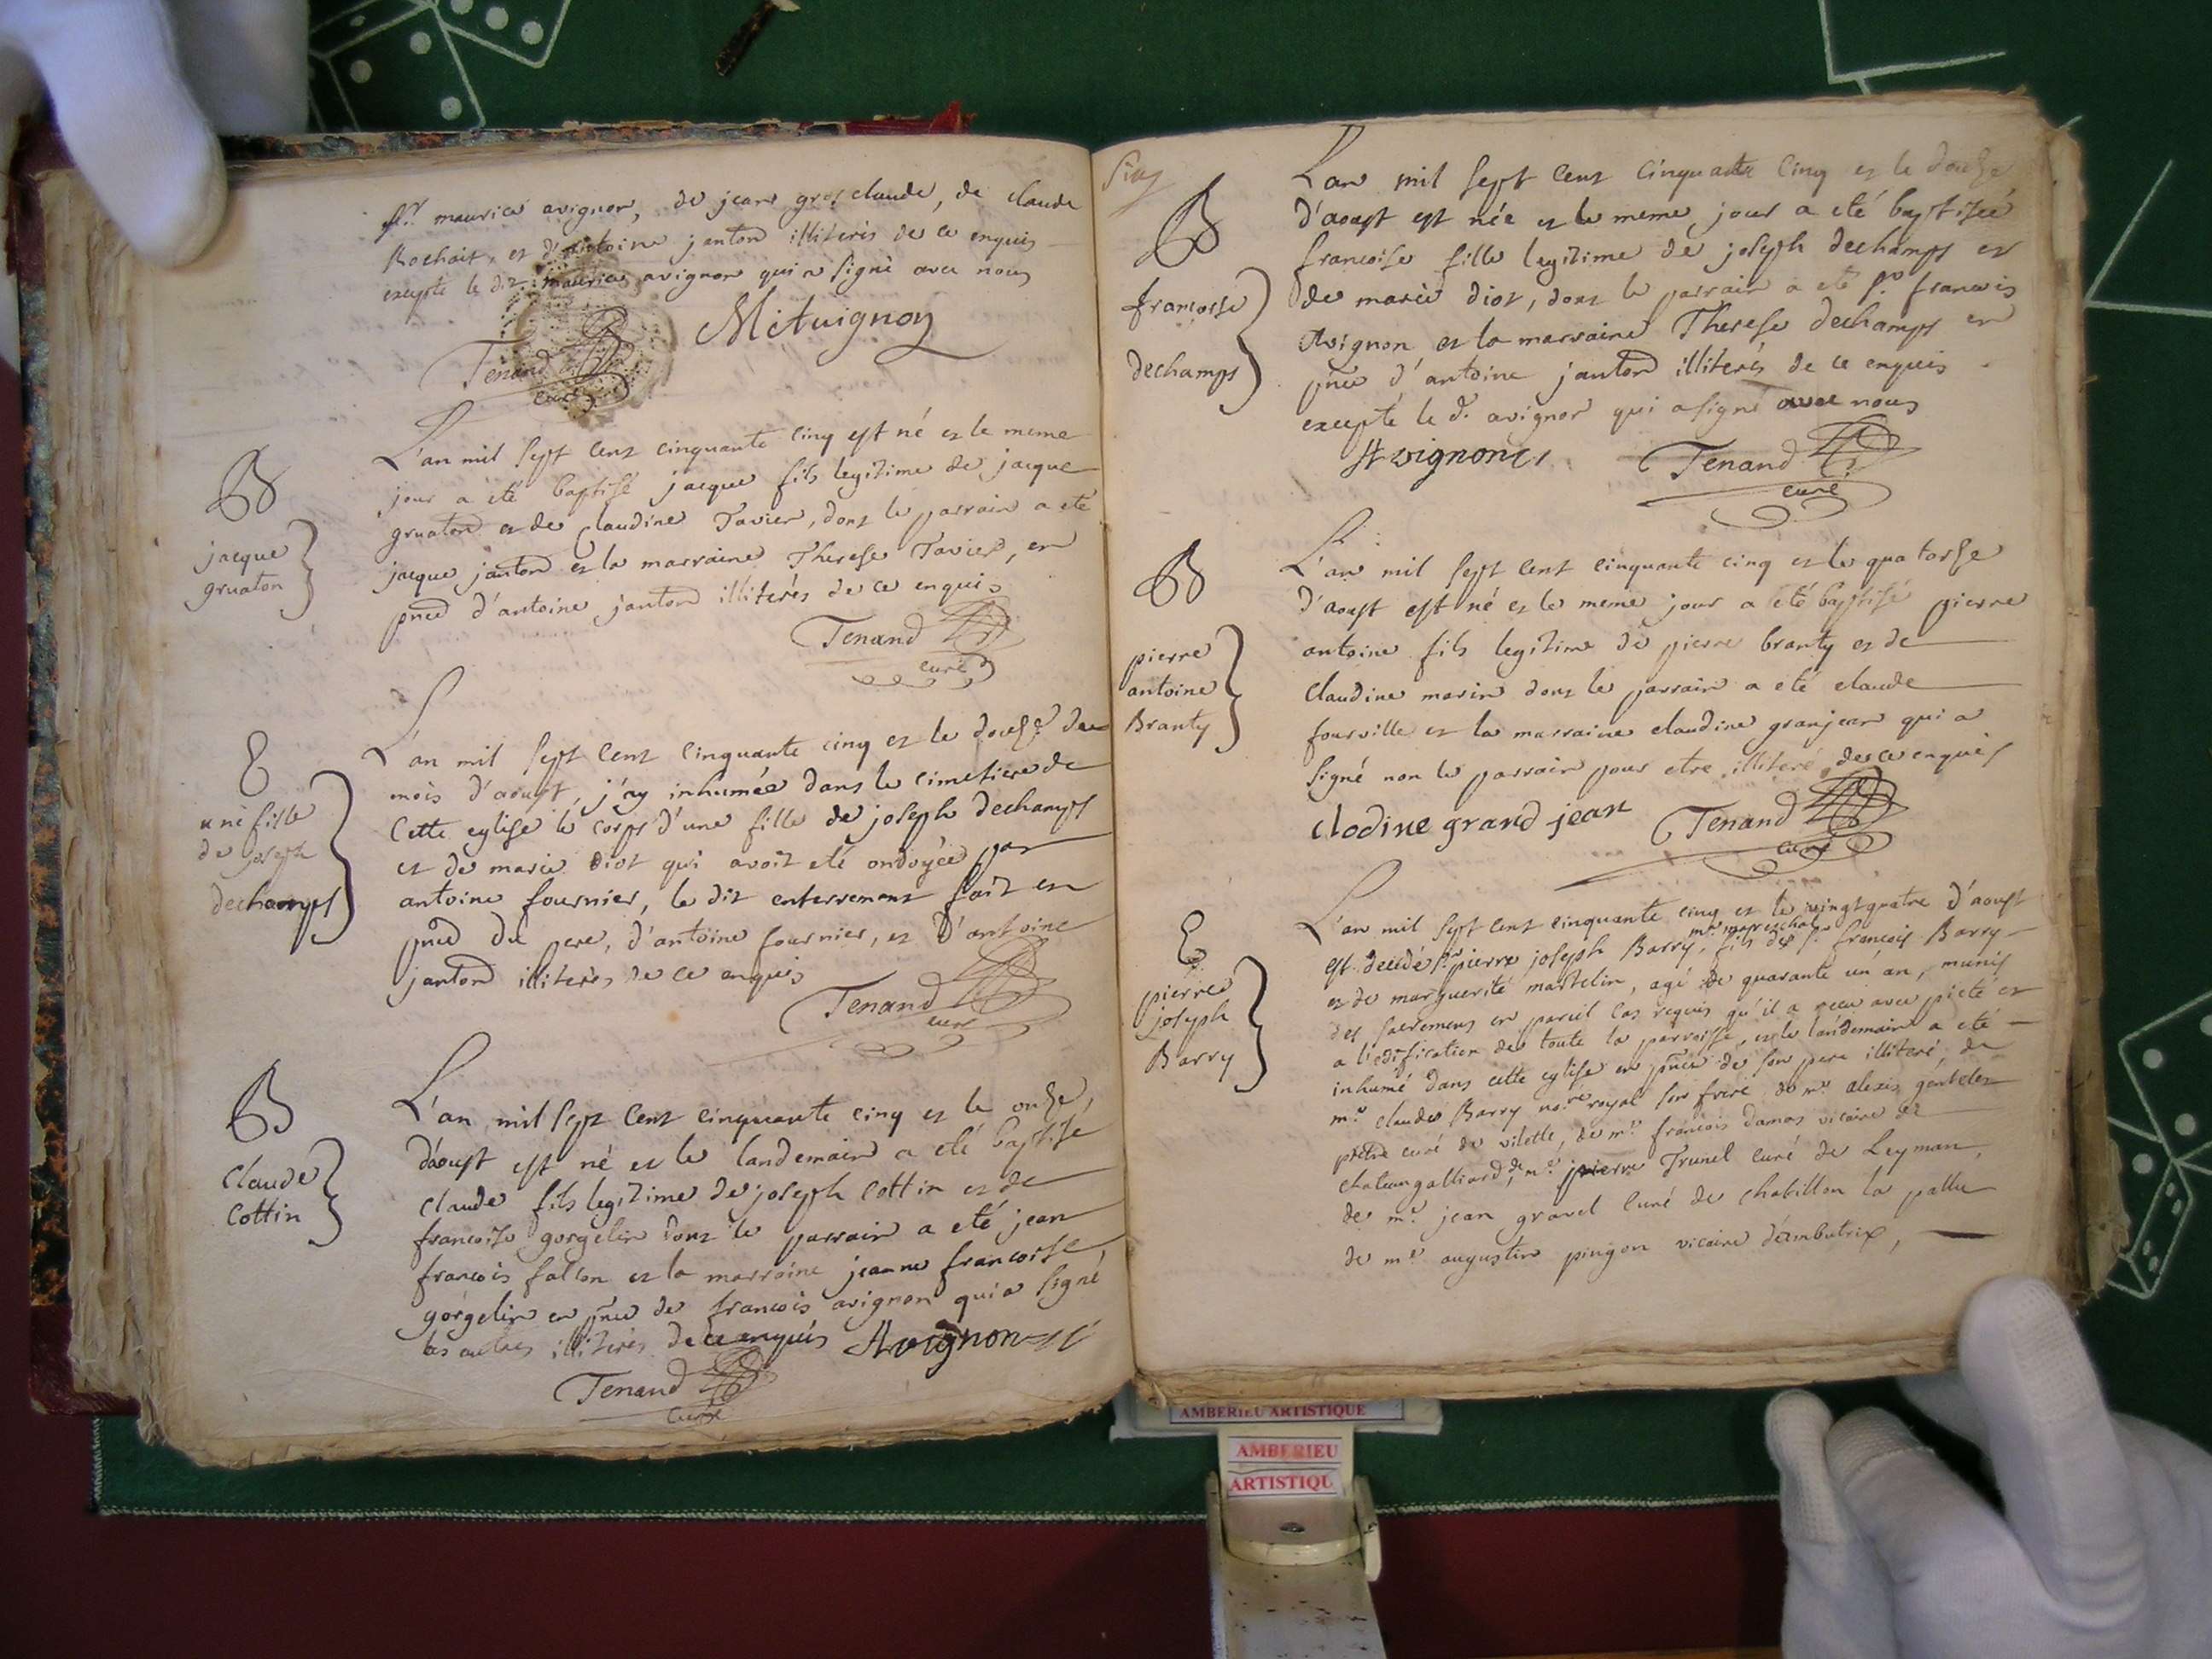 Sr. maurice avignon, de jean grosclaude, de claude
Rochait, et d'antoine janton illiterés de ce enquis
excepté le dit maurice avignon qui a signé avec nous
MAtvignon
Tenand
curé
B
jacque
gruaton
L'an mil sept cent cinquante cinq est né et le meme
jour a eté baptisé jacque fils legitime de jacque
gruaton et de Claudine Tavier, dont le parrain a eté
jacque janton et la marraine Therese Tavier, en
pnce d'antoine janton illiterés de ce enquis
Tenand
curé
E
une fille
de joseph
dechamps
L'an mil sept cent cinquante cinq et le douse du
mois d'aoust, j'ay inhumée dans le cimetiere de
Cette eglise le corps d'une fille de joseph dechamps
et de marie diot qui avoit eté ondoyée par
antoine fournier, le dit enterrement fait en
pnce du pere, d'antoine fournier, et d'antoine
janton illiterés de ce enquis
Tenand
curé
B
Claude
Cottin
L'an mil sept cent cinquante cinq et le onse,
d'aoust est né et le landemain a eté baptisé
claude fils legitime de joseph Cottin et de
francoise gorgelin dont le parrain a eté jean
francois falcon et la marraine jeanne francoise,
gorgelin en pnce de francois avignon qui a signé
les autres illiterés de ce enquis Avignon
Tenand
curé
B
francoise
dechamps
L'an mil sept cent cinquante cinq et le douse
d'aoust est née et le meme jour a eté baptisée
francoise fille legitime de joseph dechamps et
de marie diot, dont le parrain a eté sr. francois
Avignon et la marraine Therese dechamps en
pnce d'antoine janton illiterés de ce enquis
excepté le d. avignon qui a signé avec nous
Avignon
Tenand
curé
B
pierre
antoine
Branty
L'an mil sept cent cinquante cinq et le quatorse
d'aoust est né et le meme jour a eté baptisé pierre
antoine fils legitime de pierre branty et de
Claudine marin dont le parrain a eté claude
fourville et la marraine claudine granjean qui a
signé non le parrain pour etre illiteré de ce enquis
Clodine grand jean
Tenand
curé
E
pierre
joseph
Barry
L'an mil sept cent cinquante cinq et le vingt quatre d'aoust
est decedé sr. pierre joseph Barry, me marechal, fils de sr. francois Barry
et de marguerite martelin, agé de quarante un an, munis
des sacremens en pareil cas requis qu'il a receu avec pieté et
a l'edification de toute la parroisse, et le landemain a eté
inhumé dans cette eglise en pnce de son pere illiteré, de
me. claude Barry nore royal son frere de mr. alexis
pretre curé de vilette, de mr. francois damas vicaire de
chateaugalliard, de mr. pierre Trunel curé de Leyman,
de mr. jean gravel curé de chatillon la pallu
de mr. augustin pingon vicaire d'ambutrix,
AMBERIEU ARTISTIQUE
AMBERIEU
ARTISTIQU